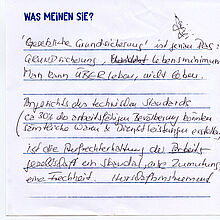 WAS MEINEN SIE?
'Gesetzliche Grundsicherung' ist genau das:
Grundsicherung, Lebensminimum
Man kann ÜBERleben, nicht leben.
Angesichts des technischen Standards
ca 30% der arbeitsfähigen Bevölkerung könnten
sämtliche Waren & Dienstleistungen erstellen,
ist die Aufrechterhaltung der Arbeits-
gesellschaft ein Skandal, eine Zumutung
eine Frechheit.